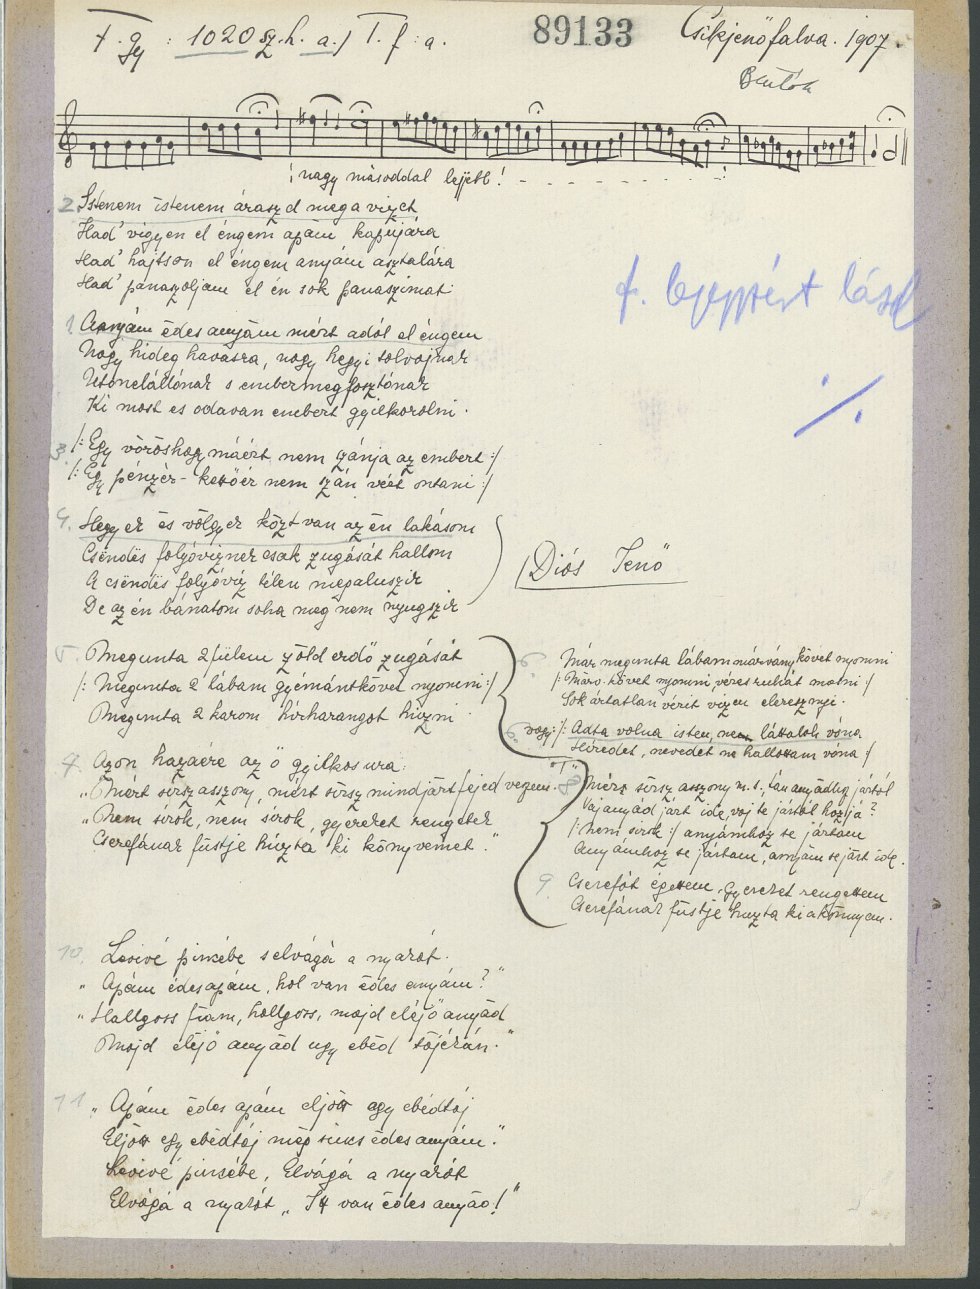 f. gy : 1020 sz. h. a.) T. f : a.
89133
Csikjenőfalva. 1907.
Bartók
¡ nagy másoddal lejebb!
2. Istenem istenem áraszd meg a vizet
Had' vigyen el éngem apám kapujára
Had' hajtson el éngem anyám asztalára
Had' panaszoljam el én sok panaszimat
f.
1. Anyám édes anyám mért adól el éngem
Nagy hideg havasra, nagy hegyi tolvajnak
Utonelállónak s embermegfosztónak
Ki most es odavan embert gyilkorolni.
3. /: Egy vöröshagymáért nem szánja az embert :/
/: Egy pénzér - kettőér nem szán vért ontani :/
4. Hegyek és völgyek közt van az én lakásom
Csëndës folyóviznek csak zugását hallom
A csëndës folyóviz télen megaluszik
De az én bánatom soha meg nem nyugszik
Diós Jenő
5. Megunta 2 fülem zöld erdő zugását
/: Megunta 2 lábam gyémántkövet nyomni :/
Megunta 2 karom hírharangot húzni
6. Már megunta lábam márványkövet nyomni
/: Márv. követ nyomni, véres ruhát mosni :/
Sok ártatlan vérit vizen eleresznyi.
6. vagy: /: Adta volna isten, ne láttalak vóna
Híredet, nevedet ne hallottam vóna :/
7. Azon hazaére az ő gyilkos ura.
„Miért sirsz asszony, mért sirsz mindjárt fejed veszem."
„Nem sírok, nem sírok, gyereket rengetek
Cserefának füstje húzta ki könyvemet."
8. Miért sirsz asszony m. t., tán anyádhoz jártál
Vaj anyád járt ide, vaj te jártál hozjá?
/: Nem sirok :/ anyámhoz se jártam
Anyámhoz se jártam, anyám se járt ide.
9. Cserefát égettem, gyereket rengettem
Cserefának füstje huzta ki a könnyem.
10. Levivé pincébe s elvágá a nyakát.
„Apám édesapám, hol van édes anyám?"
„Hallgass fiam, hallgass, majd eléjő anyád
Majd eléjő anyád ugy ebéd tájékán."
11. „Apám édes apám eljött egy ebédtáj
Eljött egy ebédtáj még sincs édes anyám."
Levivé pincébe, Elvágá a nyakát
Elvágá a nyakát „Itt van édes anyád!"